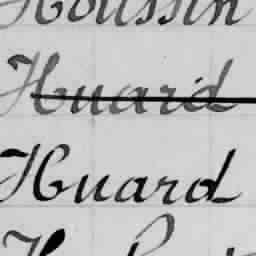 Houssin
Huard
Huard